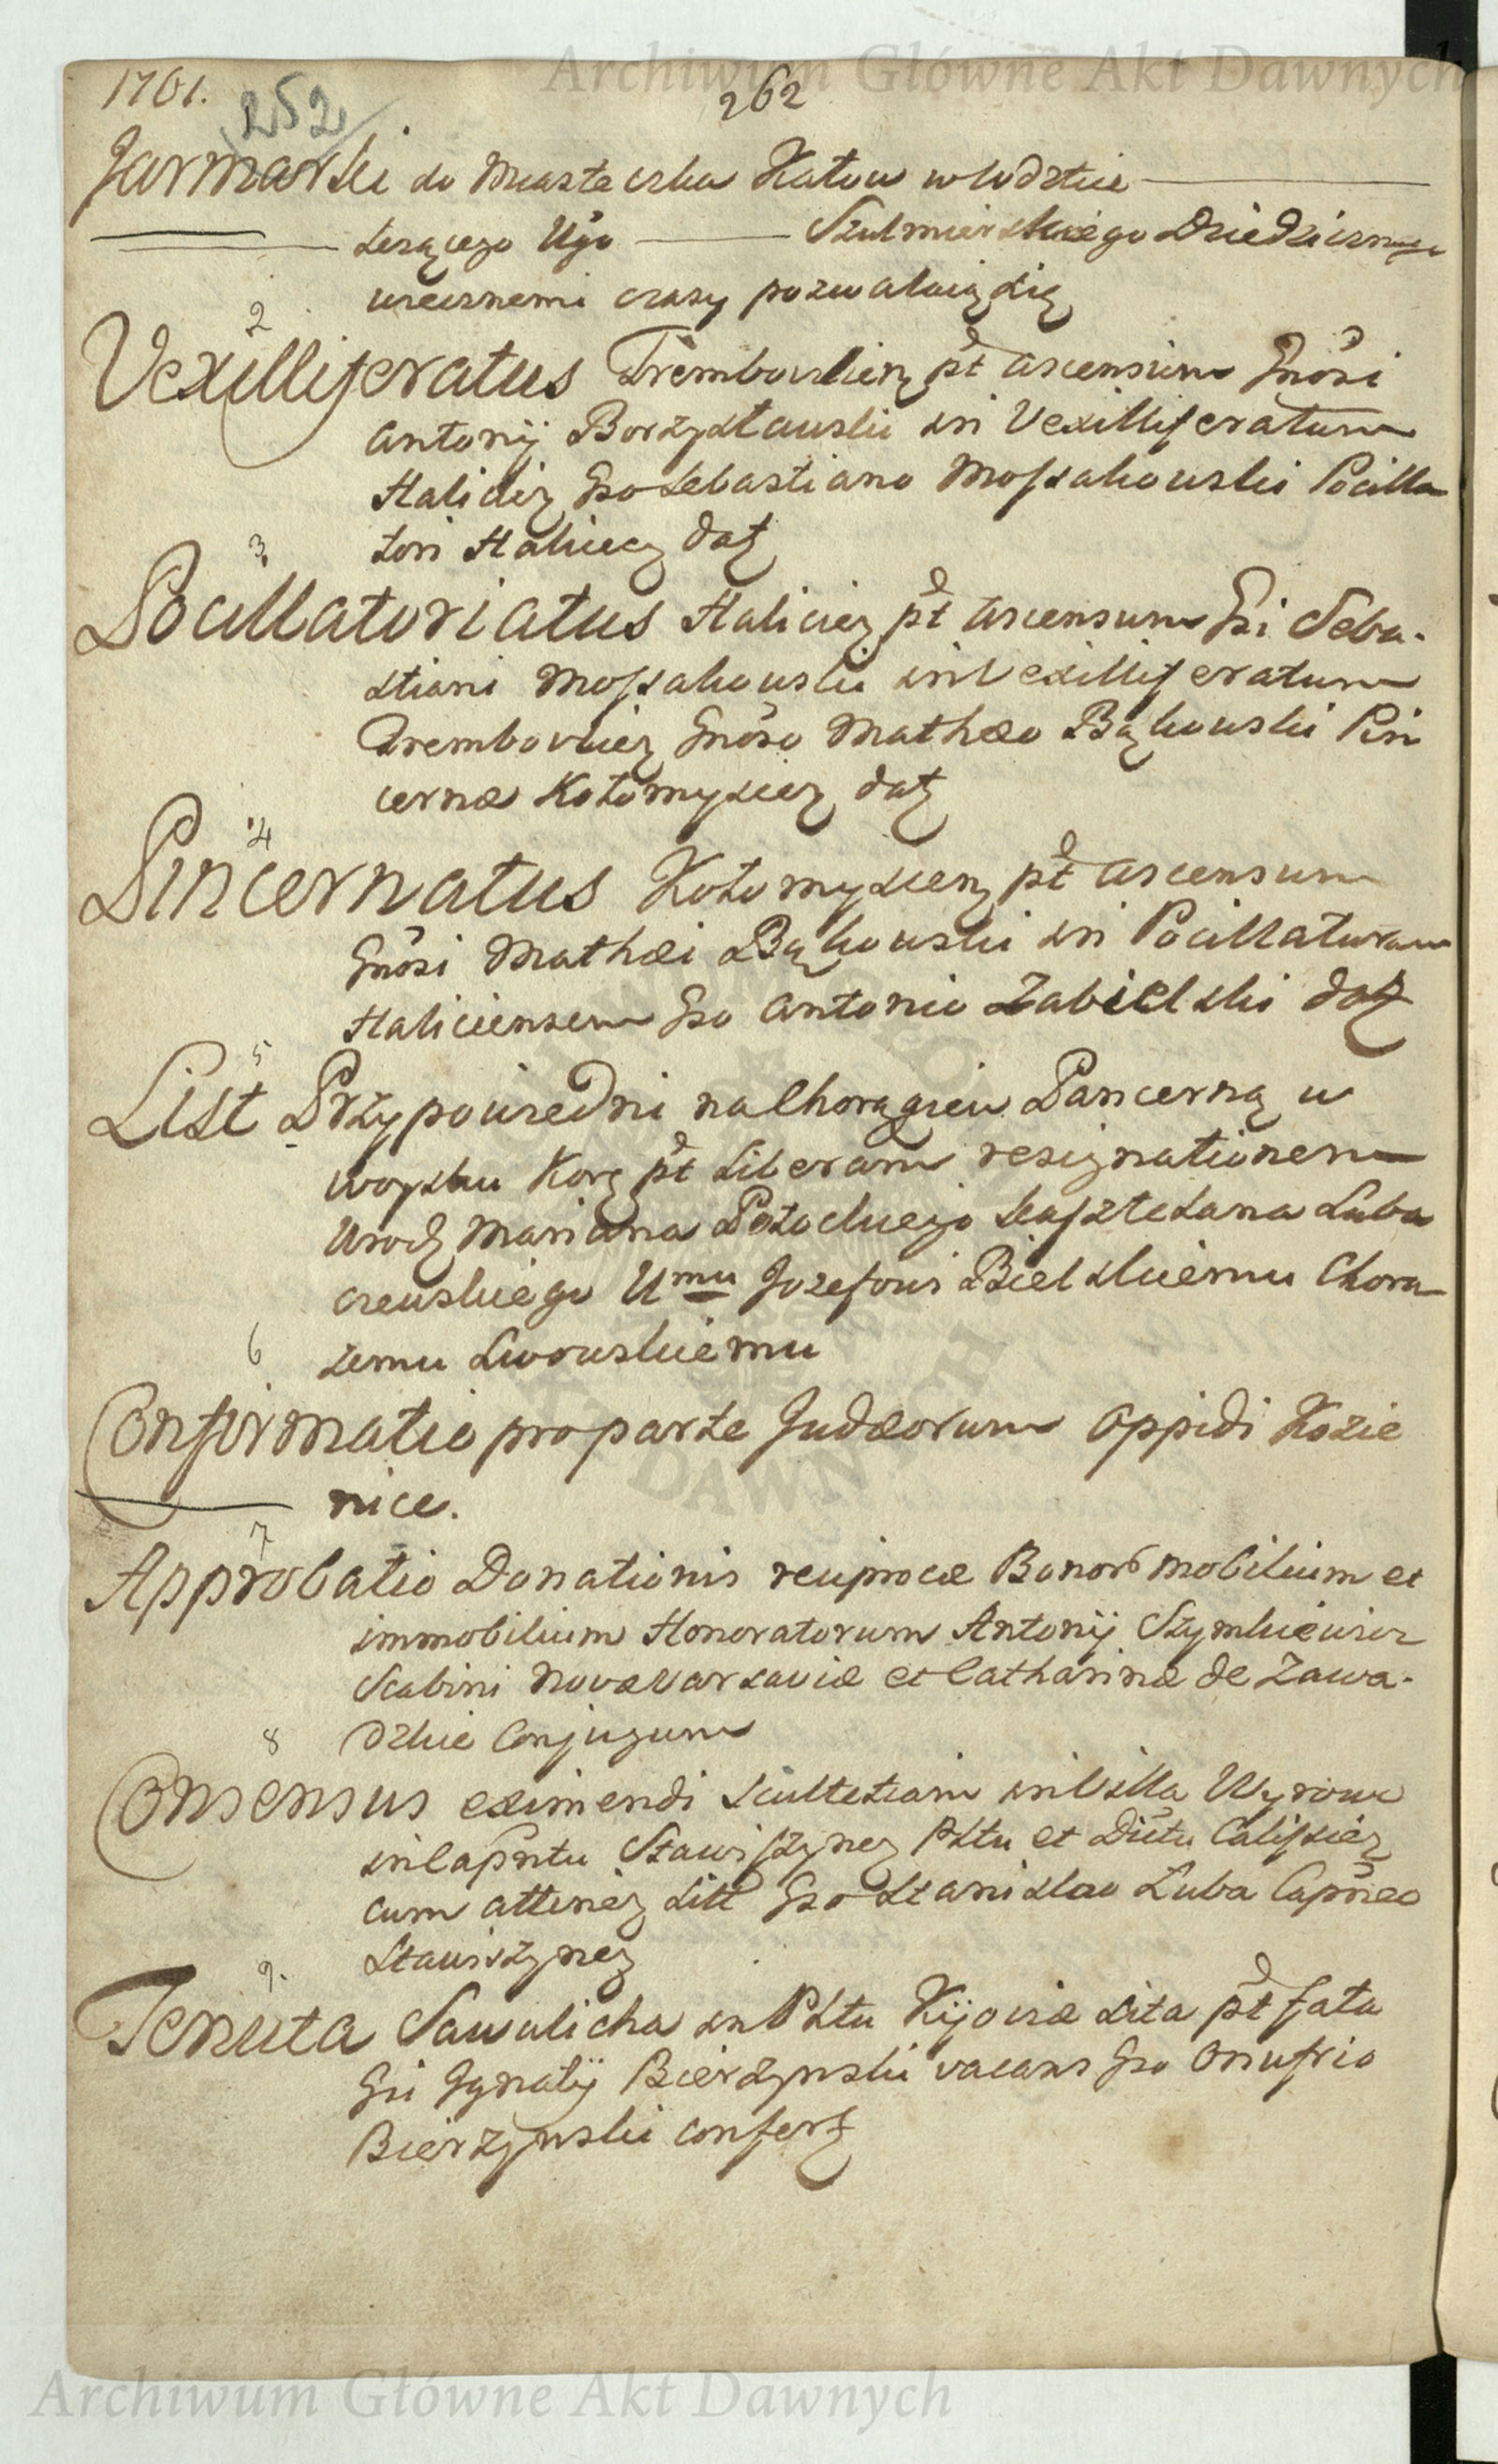 Archiwum Główne Akt Dawnych
1761.
252
262
Jarmarki do Miasteczka Katow w Łodzkie
Leżącego Ugo Szulmierskiego Dziedziczne
wiecznemi czasy pozwalaią się
2
Vexilliferatus Trembovlien pt ascensum Gnosi
Antonij Borzysławski in Vexilliferatum
Halicien Gso Sebastiano Mossakowski Pocilla
tori Halicien dat
3
Pocillatoriatus Halicien pt ascensum Gsi Seba-
stiani Mossakowski in Vexilliferatum
Trembovlien Gnoso Mathæo Bąkowski Pin
cernæ Kołomyien dat
4
Pincernatus Kołomyien pt ascensum
Gnosi Mathæi Bąkowski in Pocillaturam
Haliciensem Gso Antonio Zabielski dat
5
List Przypowiedni na Chorągiew Pancerną w
woysku Kor pt Liberam resignationem
Urod Mariana Potockiego kasztelana Luba
czewskiego Umu Jozefowi Bielskiemu Chorą
żemu Lwowskiemu
6
Confirmatio pro parte Judæorum Oppidi Kozie
nice.
7
Approbatio Donationis reciprocæ Bonor mobilium et
immobilium Honoratorum Antonij Szymkiewicz
Scabini Novæ Varsaviæ et Catharinæ de Zawa-
dzkie Conjugum
8
Consensus eximendi Scultetiam in Villa Wyrow
in Capntu Stawiszynen Pltu et Dictu Calissien
cum attinen sitt Gso Stanislao Luba Capneo
Stawiszynen
9.
Tenuta Sawulicha in Pltu Kijoviæ sita pt fata
Gsi Ignatij Bierzynski vacans Gso Onufrio
Bierzynski confert
Archiwum Główne Akt Dawnych